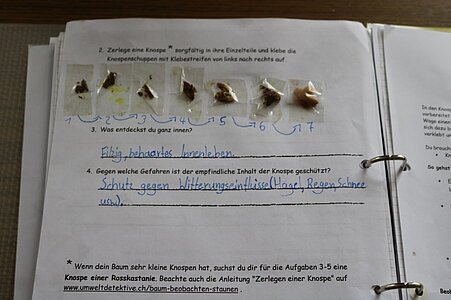 2. Zerlege eine Knospe * sorgfältig in ihre Einzelteile und klebe die
Knospenschuppen mit Klebestreifen von links nach rechts auf
1 2 3 4 5 6 7
3. Was entdeckst du ganz innen?
Filzig, behaartes Innenleben.
4. Gegen welche Gefahren ist der empfindliche Inhalt der Knospe geschützt?
Schutz gegen Witterungseinflüsse (Hagel, Regen, Schnee
usw).
* Wenn dein Baum sehr kleine Knospen hat, suchst du dir für die Aufgaben 3-5 eine
Knospe einer Rosskastanie. Beachte auch die Anleitung "Zerlegen einer Knospe" auf
www.umweltdetektive.ch/baum-beobachten-staunen .
In den Knos
vorbereitet
Wage einen
sich dazu b
verklebt u
Du brauch
So gehst
Beob